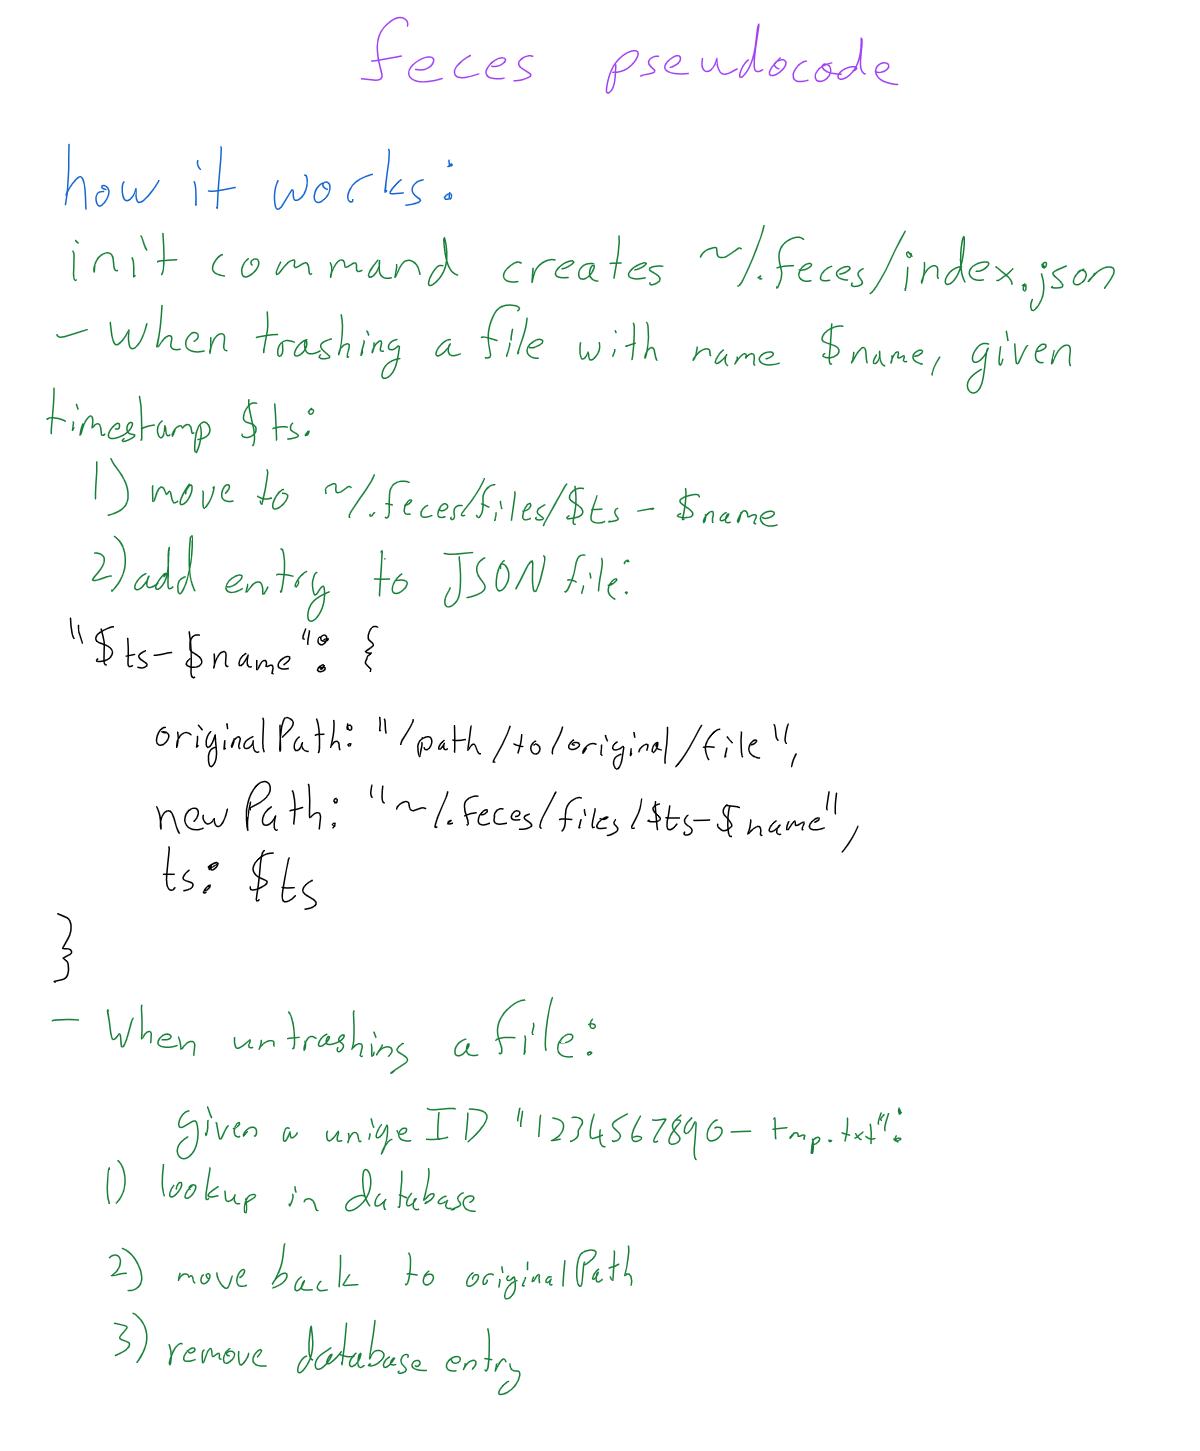 feces pseudocode
how it works:
init command creates ~/.feces/index.json
- When trashing a file with name $name, given
timestamp $ts:
1) move to ~/.feces/files/$ts-$name
2) add entry to JSON file:
"$ts-$name": {
originalPath: "/path/to/original/file",
newPath: "~/.feces/files/$ts-$name",
ts: $ts
}
- When untrashing a file:
given a uniqe ID "1234567890-tmp.txt":
1) lookup in database
2) move back to originalPath
3) remove database entry